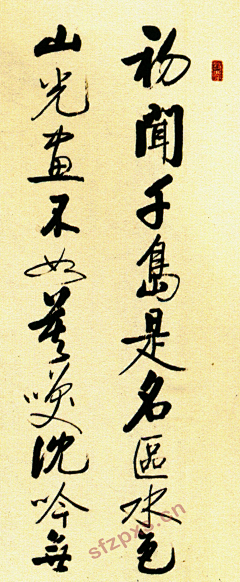 初聞千島是名區水色
山光畫不如莫咲沈吟無